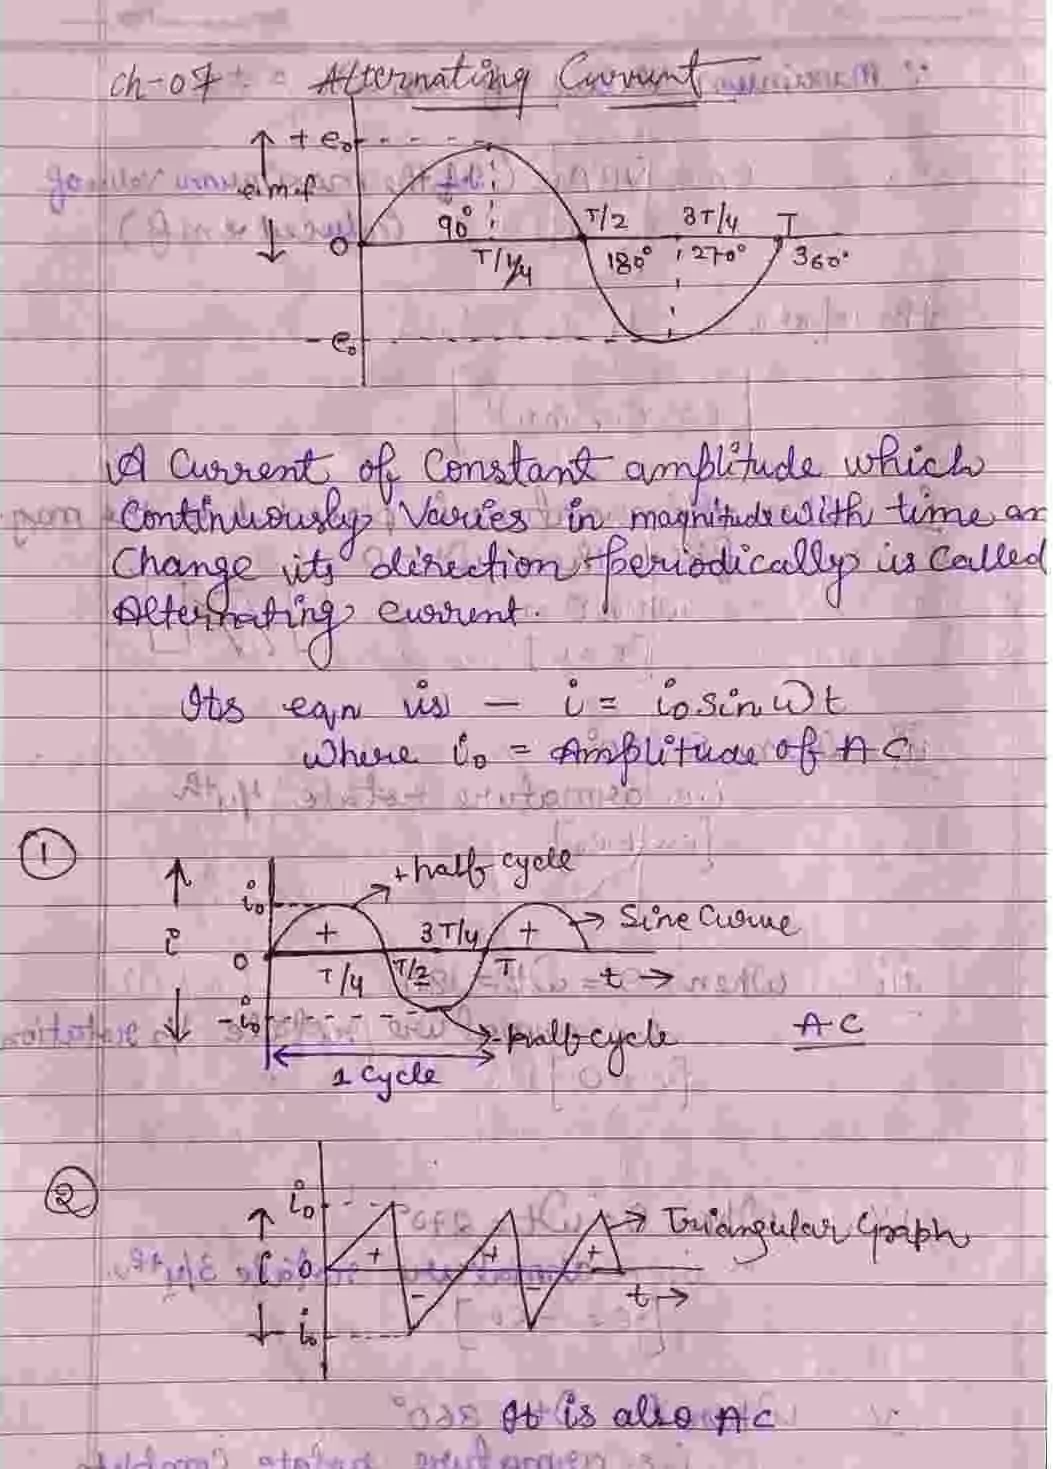 Ch-07 :- Alternating Current
+ e₀
e.m.f
90° T/2 3T/4 T
0 T/4 180° 270° 360°
- e₀
A Current of Constant amplitude which
Continuously Varies in magnitude with time an
Change its direction periodically is Called
Alternating current.
Its eqn is — i = i₀ sin ωt
Where i₀ = Amplitude of AC
① + half cycle
i₀
+ 3T/4 + Sine Curve
i
0 T/4 T/2 T t →
- i₀ - half cycle AC
1 Cycle
②
i₀ Triangular Graph
+ + +
i 0
- - t →
- i₀
It is also AC